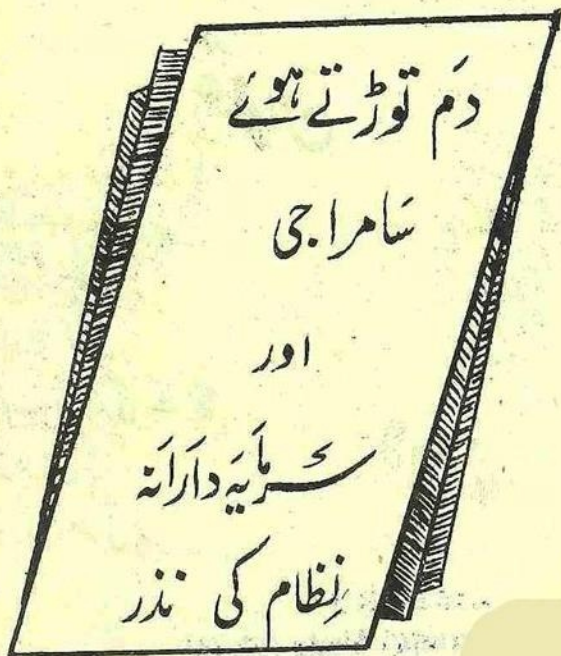 دَم توڑتے ہوئے
سَامراجی
اور
سَرمایَہ دارَانَہ
نِظام کی نذر